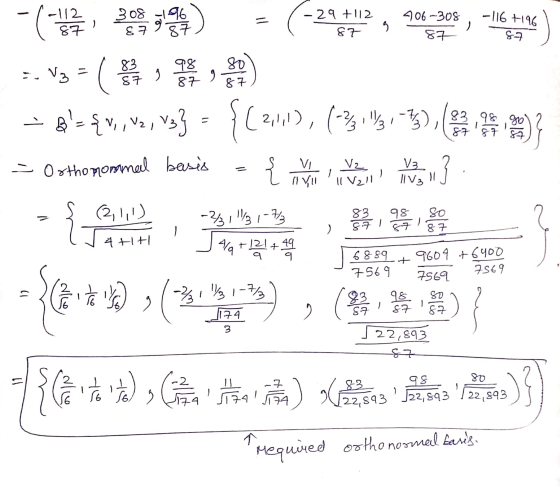 -(-112/87, 308/87, -196/87) = (-29+112/87, 406-308/87, -116+196/87)
∴ V3 = (83/87, 98/87, 80/87)
∴ B' = {V1, V2, V3} = {(2,1,1), (-2/3, 11/3, -7/3), (83/87, 98/87, 80/87)}
∴ Orthonormal basis = {V1/||V1||, V2/||V2||, V3/||V3||}.
= {(2,1,1)/√4+1+1, -2/3, 11/3, -7/3/√4/9+121/9+49/9, 83/87, 98/87, 80/87/√6889/7569+9604/7569+6400/7569
= {(2/√6, 1/√6, 1/√6), (-2/3, 11/3, -7/3)/√174/3, (83/87, 98/87, 80/87)/√22,893/87}
= {(2/√6, 1/√6, 1/√6), (-2/√174, 11/√174, -7/√174), (83/√22,893, 98/√22,893, 80/√22,893)}
↑ required orthonormal basis.